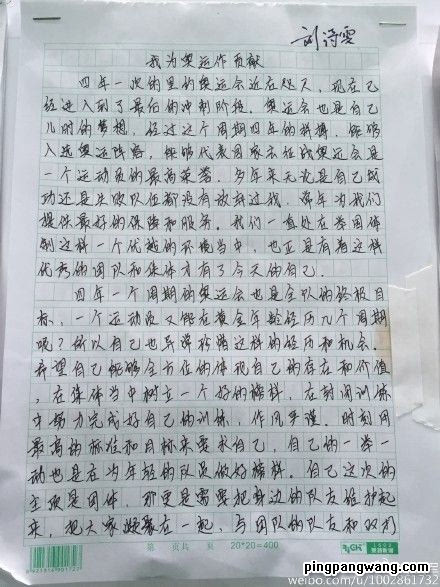 刘诗雯
我为奥运作贡献
四年一次的里约奥运会近在咫尺,现在已
经进入到了最后的冲刺阶段。奥运会也是自己
儿时的梦想,经过这个周期四年的拼搏,能够
入选奥运阵容,能够代表国家去征战奥运会是
一个运动员的最高荣誉。多年来无论是自己成
功还是失败队伍都没有放弃过我,每年为我们
提供最好的保障和服务。我们一直处在举国体
制这样一个优越的环境当中,也正是有着这样
优秀的团队和集体才有了今天的自己。
四年一个周期的奥运会也是全队的终极目
标,一个运动员又能在黄金年龄经历几个周期
呢?所以自己也异常珍惜这样的经历和机会。
希望自己能够全方位的体现自己的存在和价值
,在集体当中树立一个好的榜样,在封闭训练
中努力完成好自己的训练,作风严谨。时刻用
最高的标准和目标来要求自己,自己的一举一
动也是在当年轻的队员的好榜样。自己这次的
主项是团体,那更是需要把身边的队友维护起
来,把大家凝聚在一起,与团队的队友和双打
第 页共 页 20*20=400
6921814901723
pingpangwang.com
weibo.com/u/1002861732